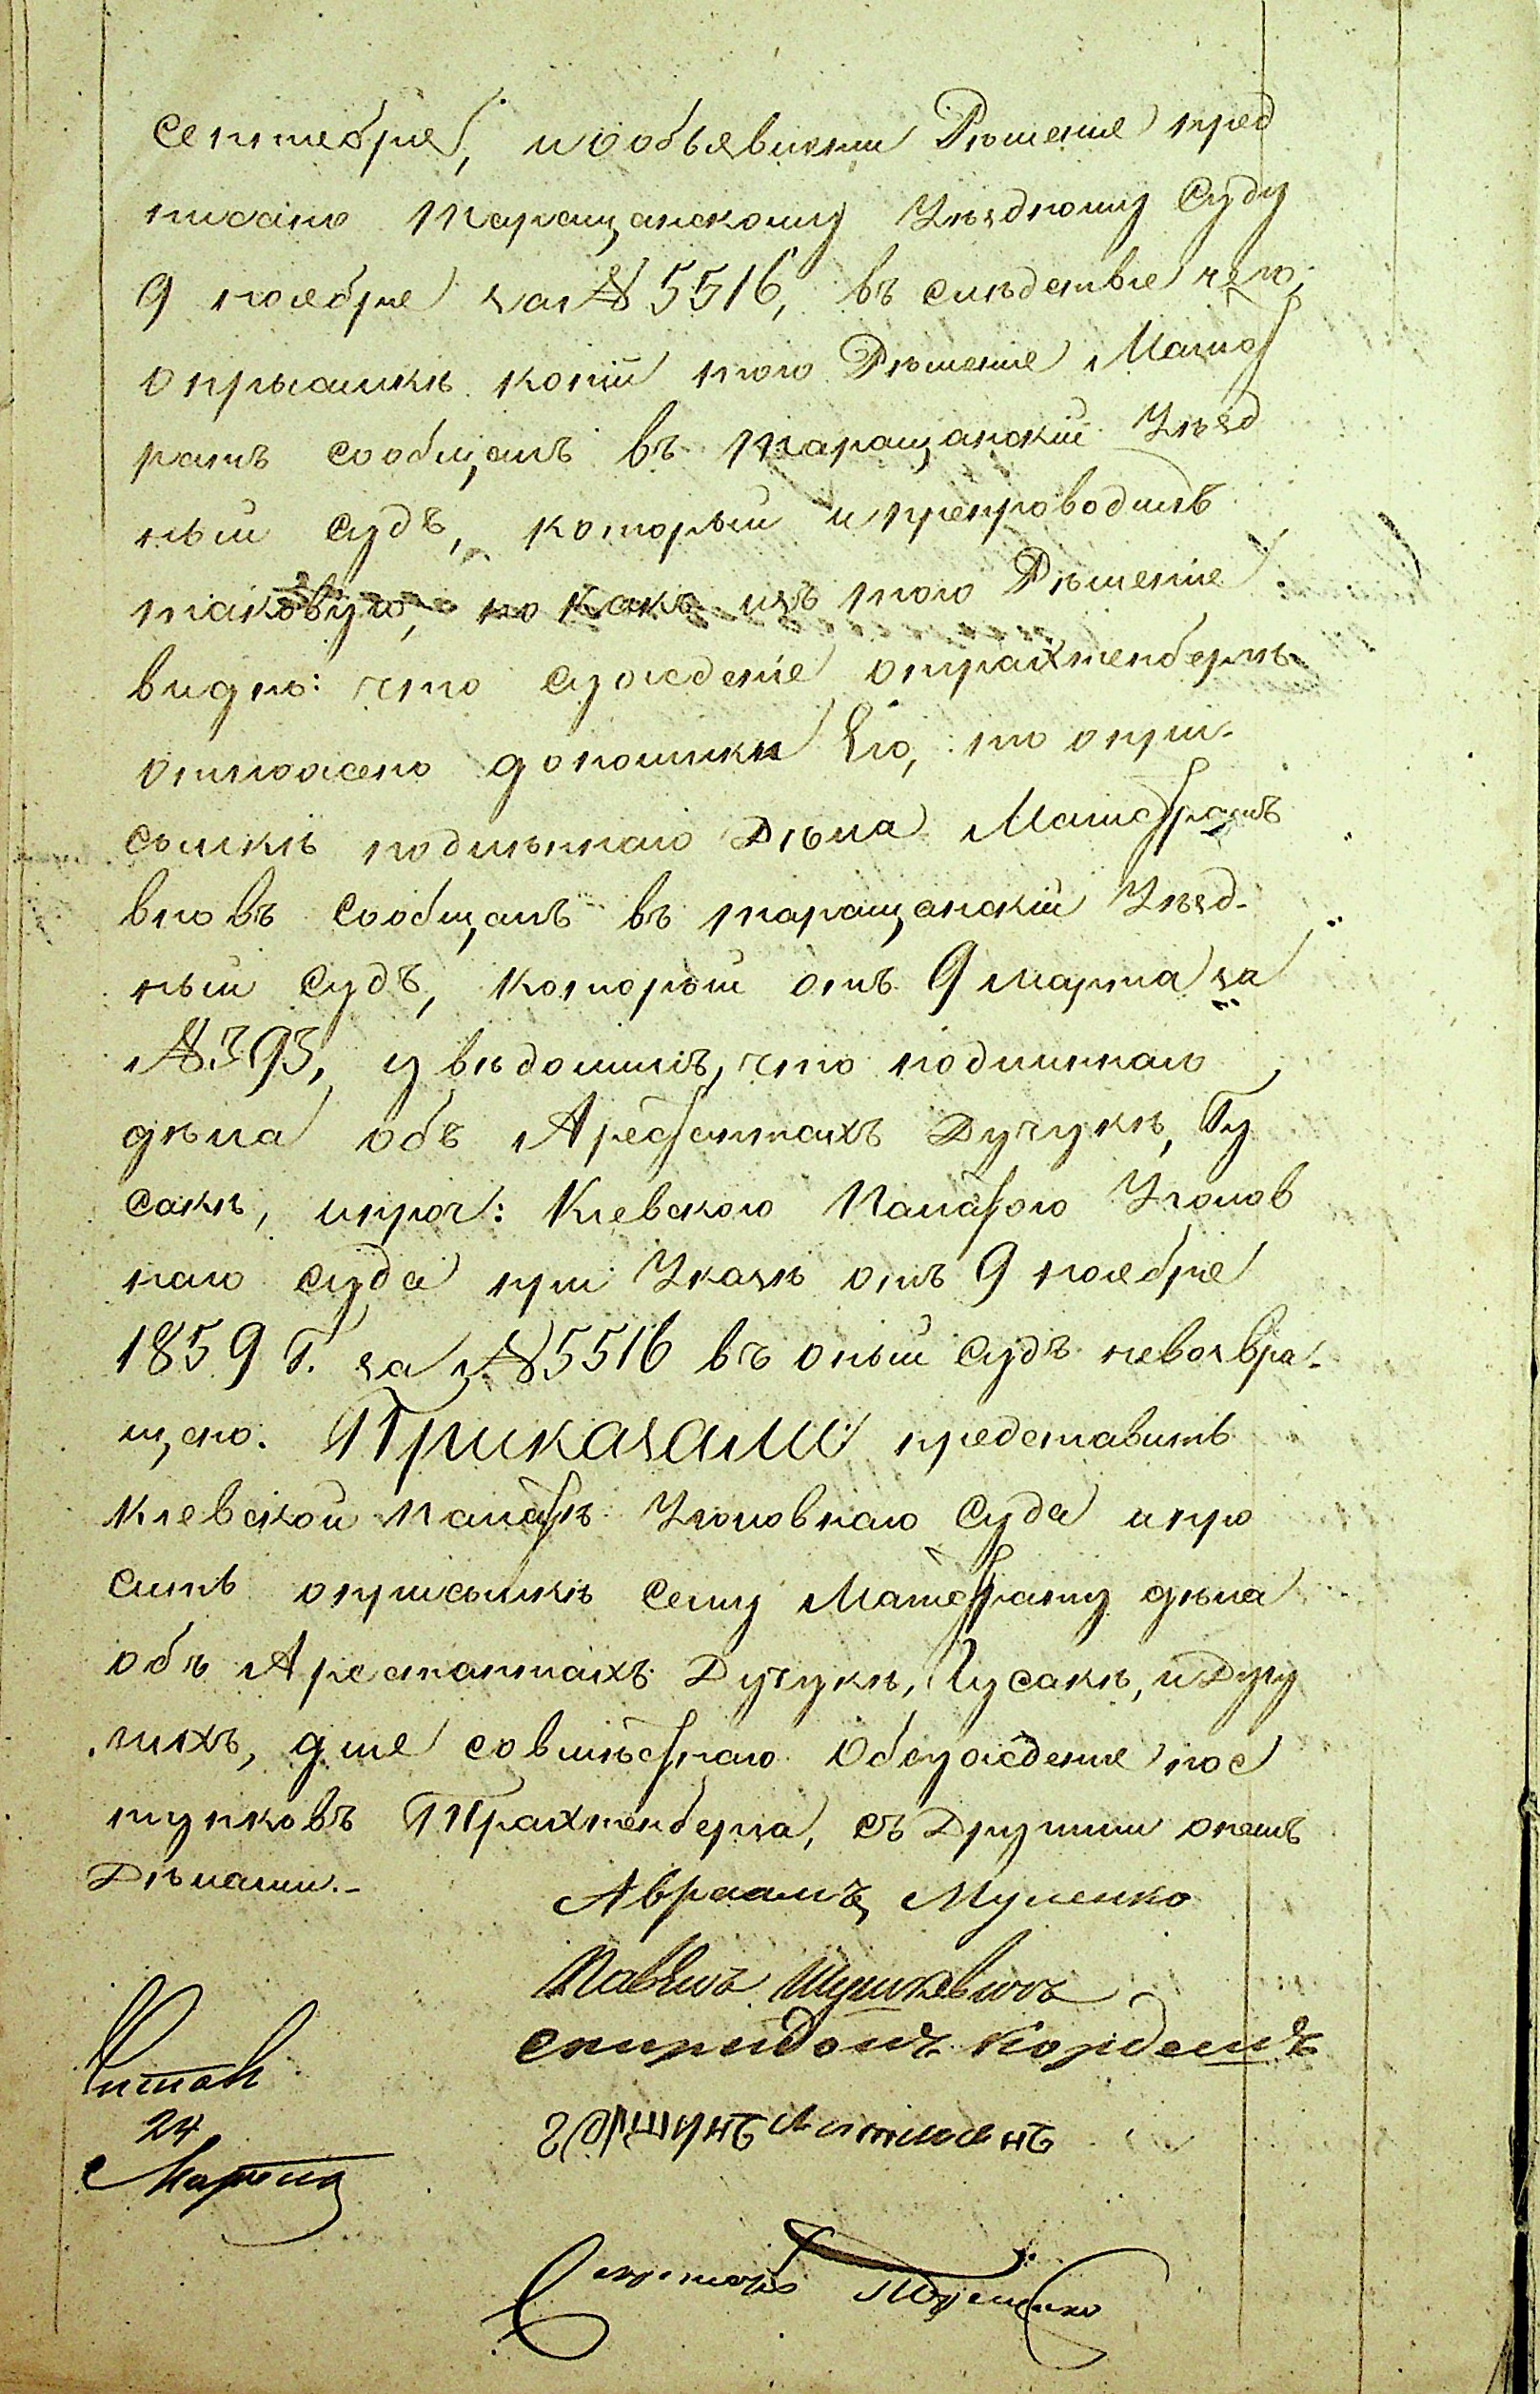 сентября, и объ объявленіи Рѣшенія пред
писано Таращанскому Уѣздному Суду
9 ноября за № 5516, въ слѣдствіе чего,
о присылкѣ копіи того Рѣшенія Магист
ратъ сообщалъ въ Таращанскій Уѣзд
ный Судъ, который и препроводилъ
таковую, но какъ изъ того Рѣшенія
видно: что сужденіе о Трахтенбергѣ
отложено до поимки Его, то о при-
сылкѣ подлиннаго Дѣла Магистратъ
вновь сообщалъ въ Таращанскій Уѣзд-
ный Судъ, который отъ 9 марта за
№ 393, увѣдомилъ, что подлиннаго
дѣла объ Арестантахъ Дучукѣ, Гу
сакѣ, и проч: Кіевскою Палатою Уголов
наго Суда при Указѣ отъ 9 ноября
1859 г. за № 5516 въ оный Судъ невозвра-
щено. Приказали представить
Кіевской Палатѣ Уголовнаго Суда и про
сить о присылкѣ сему Магистрату дѣла
объ Арестантахъ Дучукѣ, Гусакѣ, и Дру
гихъ, для совмѣстнаго Обсужденія пос
тупковъ Трахтенберга, съ Другими о немъ
Дѣлами.-
Авраамъ Муленко
Павелъ
Спиридонъ Корденъ
Читалъ
24
Марта
Секретарь